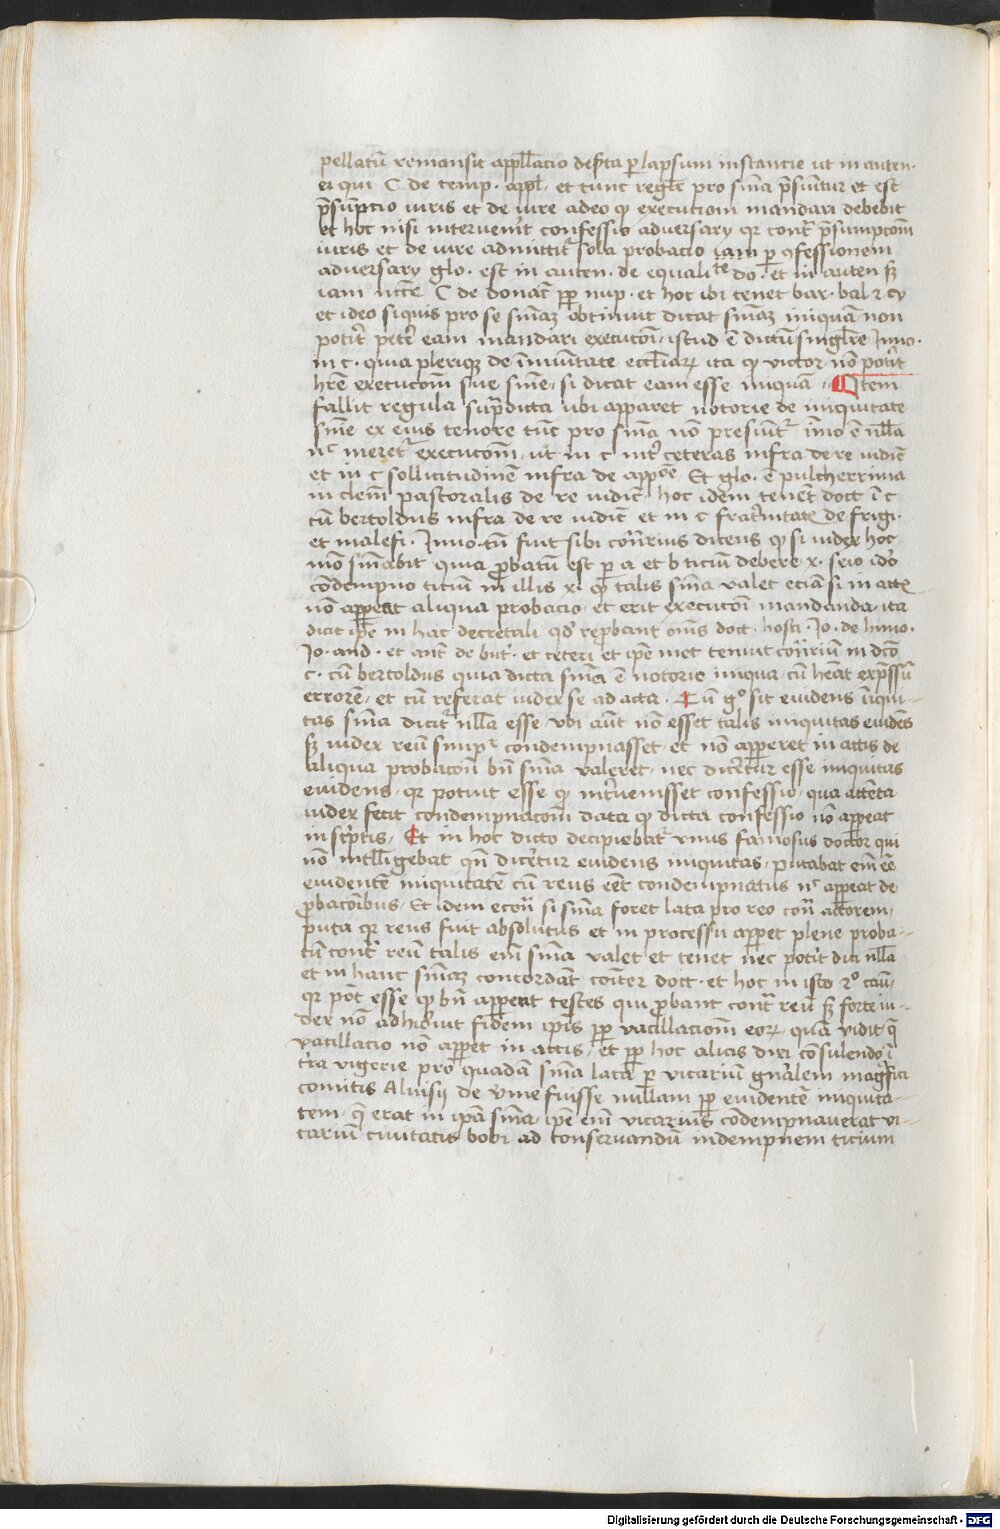 pellatū remansit appĺlacio deserta per lapsum instancie ut in auten·
ei qui C de temp· appĺ· et tunc regĺr pro sńia p̄sumitur et est
p̄sūpcio iuris et de iure adeo qꝫ execucioni mandari debebit
et hoc nisi intervenit confessio adversarÿ qꝛ contͣ p̄sumpcōm
iuris et de iure admittitᷣ sola probacio iam ꝑ ꝯfessionem
adversarÿ glo· est in auten· de equalite do· et in auten sꝫ
iam nc̄ce C de donac̄ ꝓp nup· et hoc ibi tenet bar· bal ⁊ cÿ
et ideo si quis pro se snīaꝫ obtinuit dicat snīaꝫ iniquā non
potit peter̄ eam mandari execucōi· istud ē dictū singlr̄e Inno·
in c· quia pleriqꝫ de īmuntate eccliaꝝ ita qꝫ victor nō potit
hr̄e execucōm sue snīe· si dicat eam esse iniquā· Item
fallit regula supͣdicta ubi apparet notorie de iniquitate
snīe ex eius tenore tūc pro snīa nō presumitᷣ īmo ē nlla
nͨ meretᷣ execucōm· ut in c int̄ ceteras infra de re iudic̄
et in c sollicitudinē infra de appōe Et glo· ē pulcherrima
in clem̄ pastoralis de re iudic̄ hoc idem tenet̄ doct̄ ī c
cū bertoldus infra de re iudic̄ et in c frat̄nitatꝭ de frigi·
et malefi· Inno· tn̄ fuit sibi cōn̄rius dicens qꝫ si iudex hoc
mō snīabit quia ꝓbatū est ꝑ a et b ticiū debere x· scio ido
condempno ticiū in illis x· qꝫ talis snīa valet eciā si in actꝭ
nō appeat aliqua probacio· et erit execucōi mandanda· ita
dicit ip̄e in hac decretali qd̄ reꝓbant om̄s doct· hosti· Jo· de himo·
Jo· and· et ant̄ de but̄· et ceteri et ip̄e met tenuit cōn̄rium in dc̄o
c· cū bertoldus quia dicta snīa ē notorie iniqua cū heat exp̄ssū
errorē· et cū referat iudex se ad acta· Cū gͦ sit evidens īiqui-
tas snīa dicit̄ nlla esse· vbi aūt nō esset talis iniquitas evidēs
sꝫ iudex reū simpᷣ condempnasset· et nō apperet in actis de
aliqua probacōni bn̄ snīa valeret· nec diceretur esse iniquitas
evidens· qꝛ potuit esse qꝫ intvenisset confessio· qua attēta
iudex fecit condempnacōm data qꝫ dicta confessio nō appeat
in sc̄ptis· Et in hoc dicto decipiebatᷣ vnus famosus doctor qui
nō intlligebat qn̄ diceretur evidens iniquitas· putabat em̄ eē
evidentē iniquitatē cū reus eēt condempnatus nͨ appeat de
ꝓbacōibus· Et idem econ̄ si snīa foret lata pro reo con̄ actorem·
puta qꝛ reus fuit absolutus et in processu appet plene proba-
tū contᷓ reū talis em̄ snīa valet et tenet nec potit dici nlla
et in hanc snīaꝫ concordāt cōiter doct· et hoc in isto 2º cau·
qꝛ pōt esse qꝫ bn̄ appeat testes qui ꝓbant contᷓ reū sꝫ forte iu-
dex nō adhibuit fidem ip̄is ꝓp vacillaciom̄ eoꝝ quā vidit· q̄
vacillacio nō appet in actis· et ꝓp hoc alias dixi cōsulendo ī
tr̄a vigerie pro quadā snīa lata ꝑ vicariū gn̄alem magͥfici
comitis Aluisij de vme fuisse nullam ꝓp evidentē iniquita-
tem· q̄ erat in ip̄a snīa· ip̄e em̄ vicarius cōdempnaverat vi-
carium civitatis bobi ad conservandū indempnem ticium
Digitalisierung gefördert durch die Deutsche Forschungsgemeinschaft - DFG